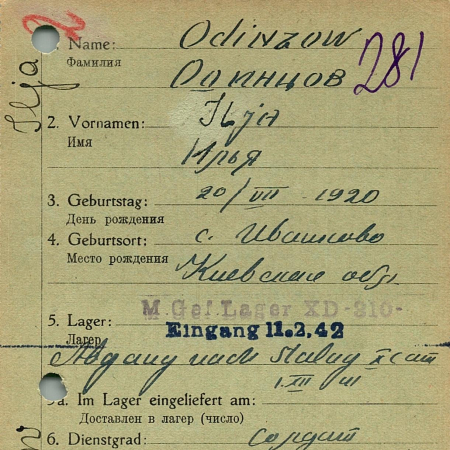 2
1. Name: Odinzow
Фамилия
Одинцов
281
Ilja
2. Vornamen: Ilja
Имя
Илья
3. Geburtstag: 20/VIII 1920
День рождения
4. Geburtsort: с.
Место рождения
Киевская обл.
M.Gef.Lager XD-310-
5. Lager: Eingang 11.2.42
Лагерь
Abgang nach Stalag
5a. Im Lager eingeliefert am:
Доставлен в лагер (число)
6. Dienstgrad: солдат